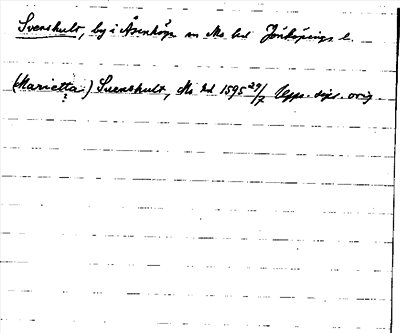 Svenskult, by i Åsenhöga sn Mo hd Jönköpings l.
(Marietta?) Svenskult, Mo hd 1595 29/7 Upps. dipl. orig.